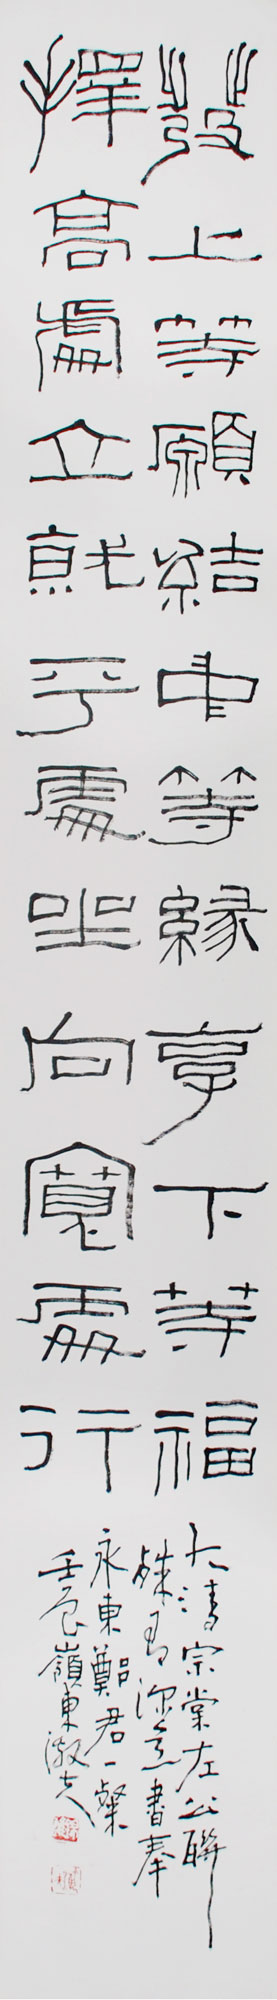 發上等願結中等緣享下等福
擇高處立就平處坐向寬處行
大清宗棠左公聯
殊有深意書奉
永東鄭君一粲
嶺東